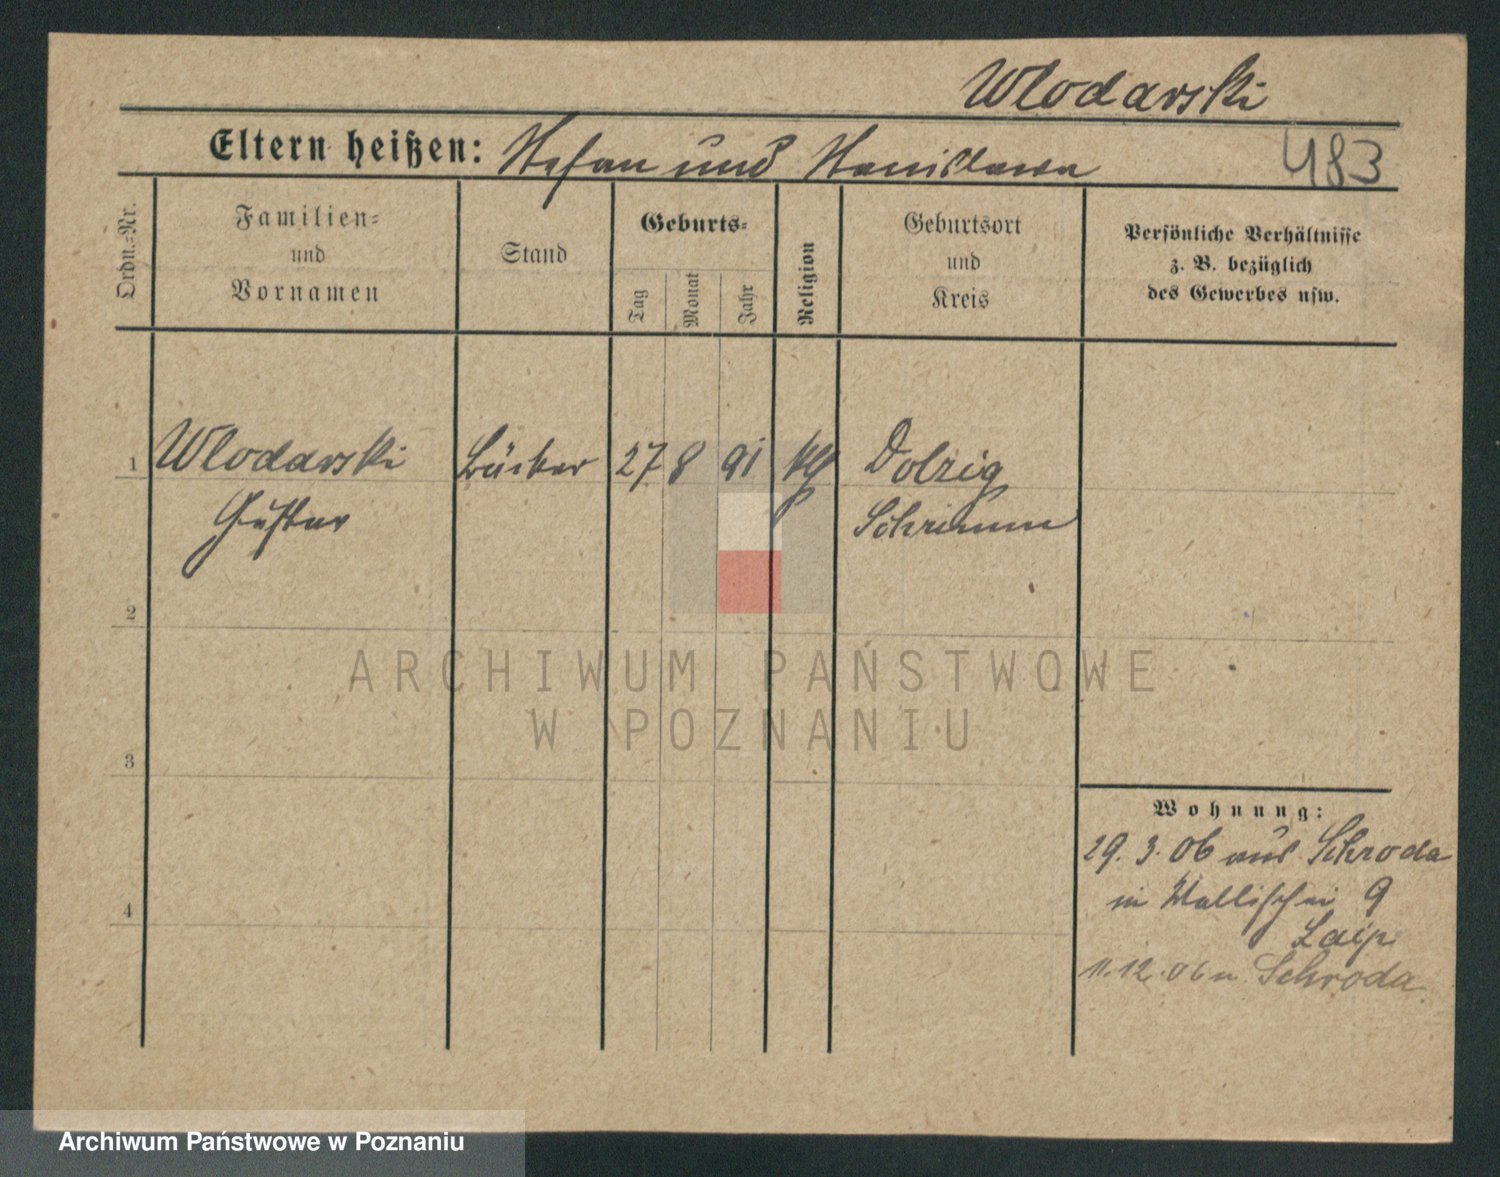 Wlodarski
Eltern heißen: Stefan und Stanislawa
483
Ordn.=Nr.
Familien=
und
Vornamen
Stand
Geburts=
Tag
Monat
Jahr
Religion
Geburtsort
und
Kreis
Persönliche Verhältnisse
z. B. bezüglich
des Gewerbes usw.
1 Wlodarski Bäcker 27 8 91 kg Dolzig
Gustav Schrimm
2
3
4
Wohnung:
29. 3. 06 aus Schroda
in Wallischei 9
11.12.06 n. Schroda
ARCHIWUM PAŃSTWOWE
W POZNANIU
Archiwum Państwowe w Poznaniu